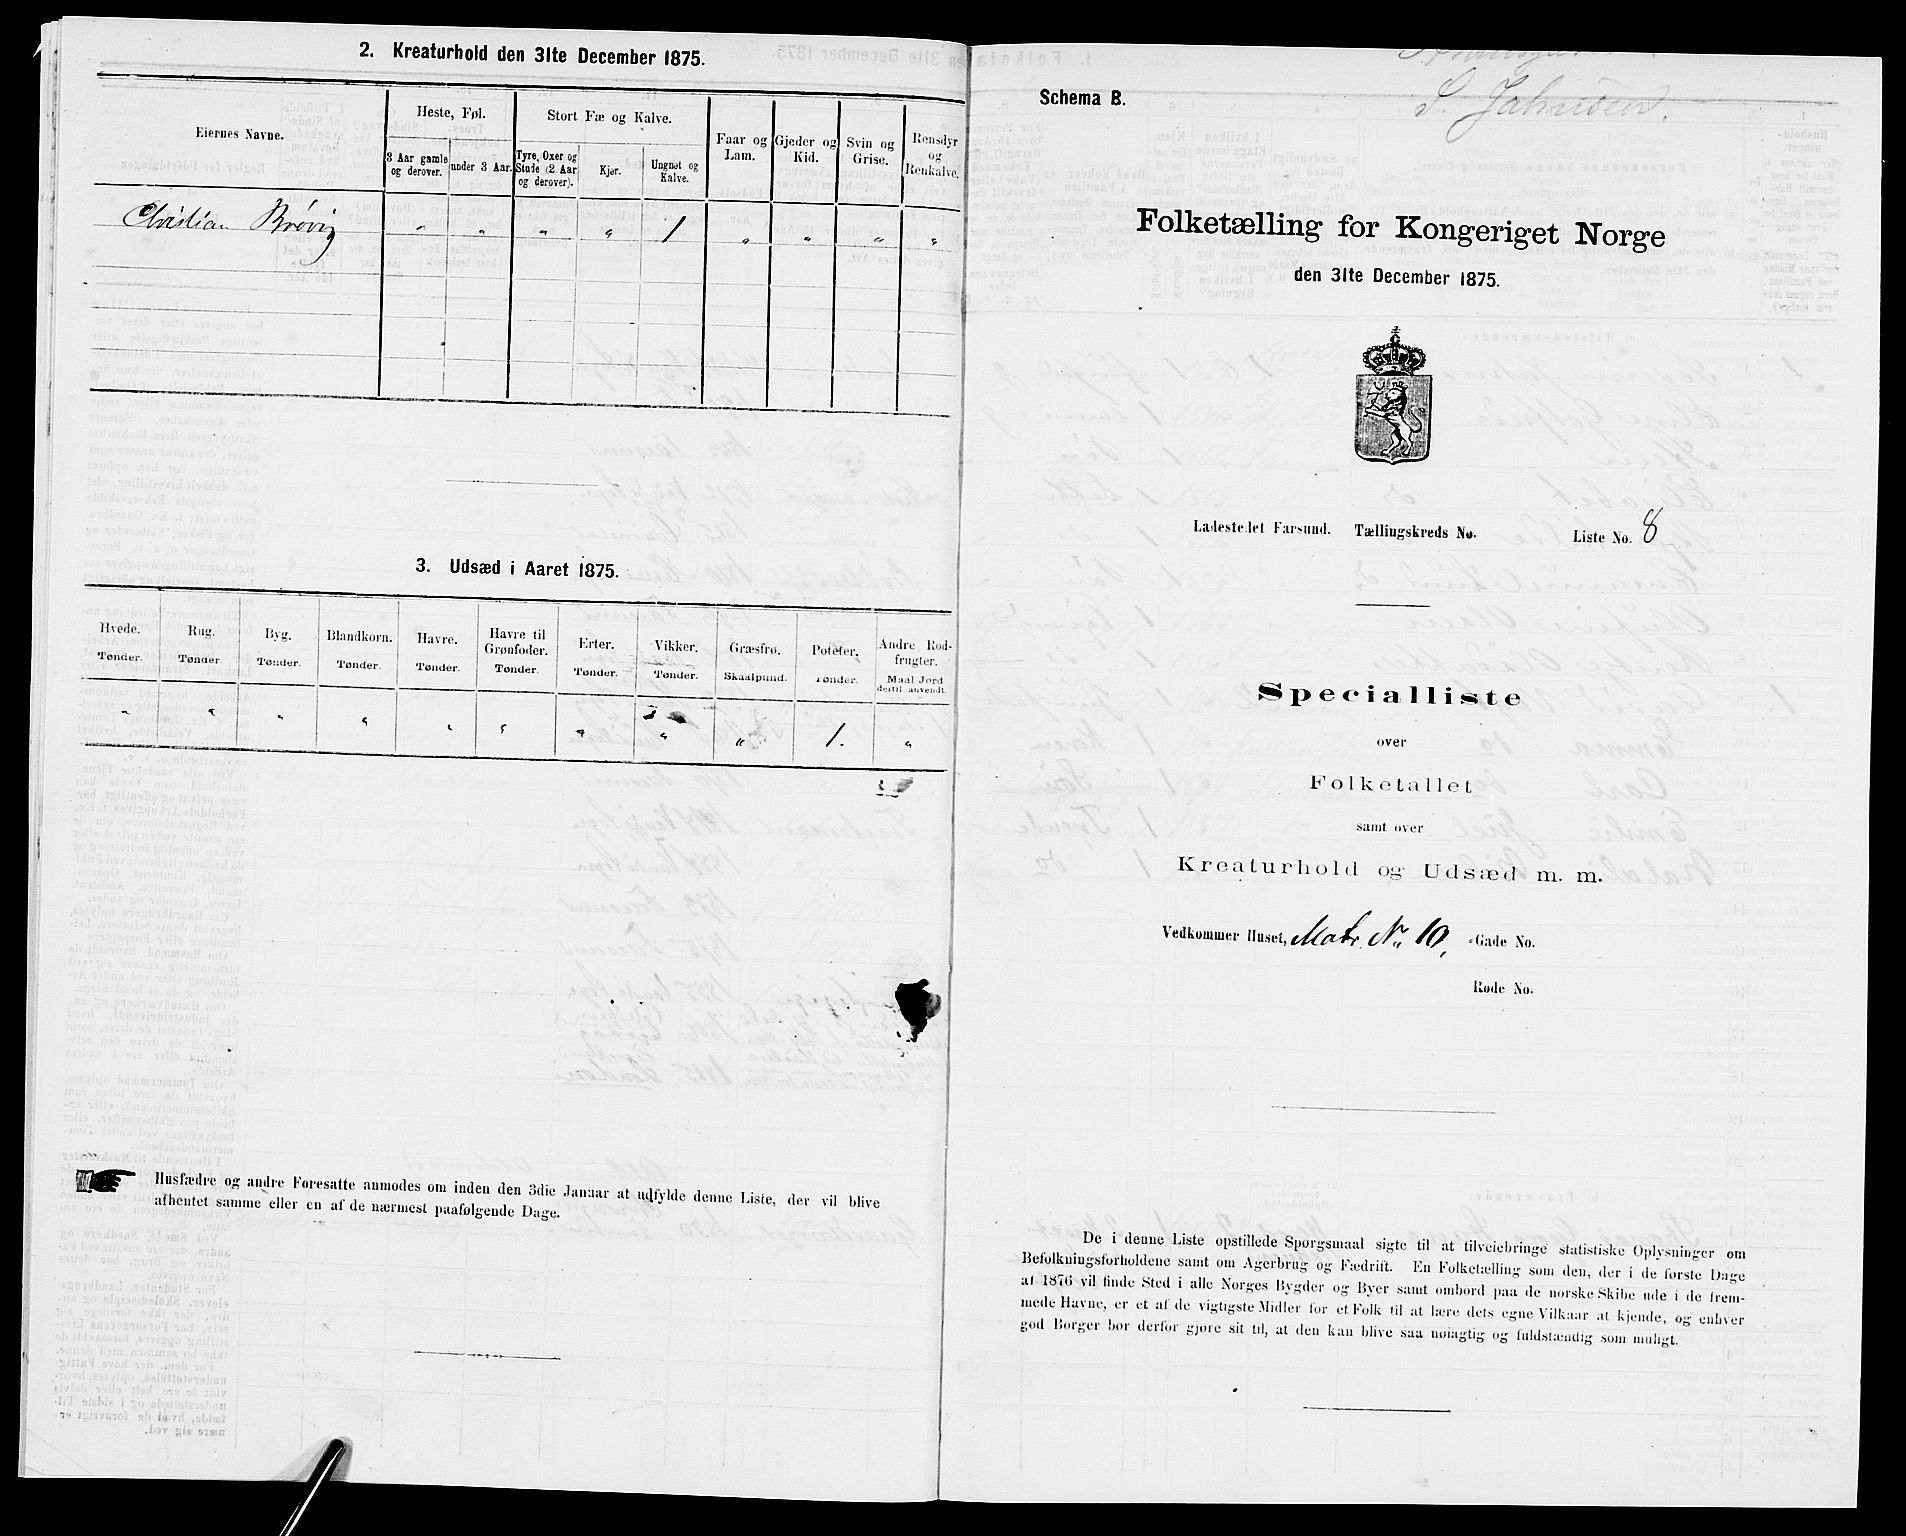 2. Kreaturhold den 31te December 1875.
Eiernes Navne.
Heste, Føl.
Stort Fæ og Kalve.
Faar og Lam.
Gjeder og Kid.
Svin og Grise.
Rensdyr og Renkalve.
3 Aar gamle og derover.
under 3 Aar.
Tyre, Oxer og Stude (2 Aar og derover).
Kjør.
Ungnøt og Kalve.
Christian Brøvig " " " " 1 " " " "
3. Udsæd i Aaret 1875.
Hvede. Rug. Byg. Blandkorn. Havre. Havre til Grønfoder. Erter. Vikker. Græsfrø. Poteter. Andre Rodfrugter.
Tønder. Tønder. Tønder. Tønder. Tønder. Tønder. Tønder. Tønder. Skaalpund. Tønder. Maal Jord dertil anvendt.
" " " " " " " " " 1. "
Husfædre og andre Foresatte anmodes om inden den 3die Januar at udfylde denne Liste, der vil blive
afhentet samme eller en af de nærmest paafølgende Dage.
Schema B.
S. Jahnsen.
Folketælling for Kongeriget Norge
den 31te December 1875.
Ladestedet Farsund. Tællingskreds No. Liste No. 8
Specialliste
over
Folketallet
samt over
Kreaturhold og Udsæd m. m.
Vedkommer Huset, Matr. No 10, -Gade No.
Rode No.
De i denne Liste opstillede Spørgsmaal sigte til at tilveiebringe statistiske Oplysninger om
Befolkningsforholdene samt om Agerbrug og Fædrift. En Folketælling som den, der i de første Dage
af 1876 vil finde Sted i alle Norges Bygder og Byer samt ombord paa de norske Skibe ude i de frem-
mede Havne, er et af de vigtigste Midler for et Folk til at lære dets egne Vilkaar at kjende, og enhver
god Borger bør derfor gjøre sit til, at den kan blive saa nøiagtig og fuldstændig som muligt.